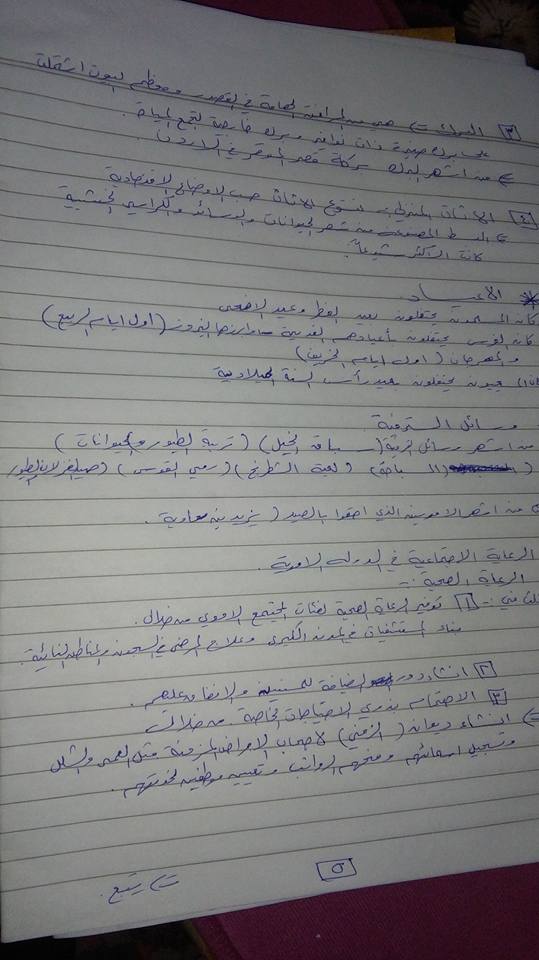 ٣ البرك ← هي من المرافق الهامة في القصور ومعظم البيوت اشتملت
على برك صغيرة ذات نوافير وبرك خارجية لتجمع المياه.
← من اشهر البرك بركة قصر الموقر في الاردن
٤ الاثاث المنزلي ← تنوع الاثاث حسب الاوضاع الاقتصادية
← البسط المصنوعة من شعر الحيوانات والوسائد والكراسي الخشبية
كانت الاكثر شيوعاً.
* الأعياد
كان المسلمون يحتفلون بعيد الفطر وعيد الاضحى
كان الفرس يحتفلون بأعيادهم القديمة النيروز (اول ايام الربيع)
و المهرجان (اول ايام الخريف)
يحتفلون بعيد رأس السنة الميلادية
وسائل الترفيه
من اشهر وسائل الترفيه (سباق الخيل) (تربية الطيور والحيوانات)
(السباحة) (لعبة الشطرنج) (رمي القوس) (صيد الغزلان والطيور
من اشهر الامويين الذي اهتموا بالصيد (يزيد بن معاوية.
الرعاية الاجتماعية في الدولة الاموية.
الرعاية الصحية :-
١ توفير الرعاية الصحية لفئات المجتمع الاموي من خلال.
بناء المستشفيات في المدن الكبرى وعلاج المرضى في السجون والمناطق النائية.
٢ انشاء دور الضيافة للمسنين والانفاق عليهم.
٣ الاهتمام بذوي الاحتياجات الخاصة من خلال
← انشاء ديوان (الزمنى) لاصحاب الامراض المزمنة مثل العمى والشلل
وتسجيل اسمائهم ومنحهم الرواتب وتعيين موظفين لخدمتهم.
٥
← يتبع.